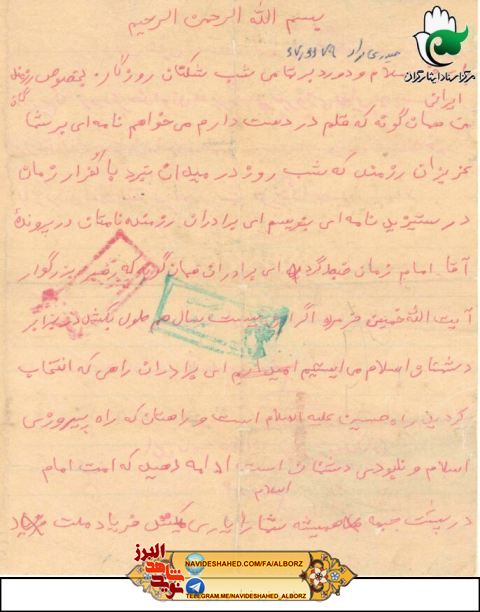 بسم الله الرحمن الرحیم
مرکز اسناد ایثارگران
سلام و درود بر تمامی شب شکنان روزگار. بخصوص رزمندگان
ایران
من همان گونه که قلم در دست دارم می خواهم نامه ای بر شما
عزیزان رزمنده که شب روز در میدان نبرد با کفار زمان
در ستیزید نامه ای بنویسم ای برادران رزمنده نامتان در پرونده
آقا امام زمان ضبط گردید ای برادران همان گونه که رهبر بزرگوار
آیت الله خمینی فرمود اگر این بیست سال هم طول بکشد در برابر
دشمنان اسلام می ایستیم امیدواریم ای برادران راهی که انتخاب
کردین راه حسین علیه السلام است و راهتان که راه پیروزی
اسلام و نابودی دشمنان است ادامه دهید که امت امام
اسلام
در پشت جبهه همیشه شما را یاری میکنند فریاد ملت
NAVIDESHAHED.COM/FA/ALBORZ
TELEGRAM.ME/NAVIDESHAHED_ALBORZ
نوید شاهد البرز